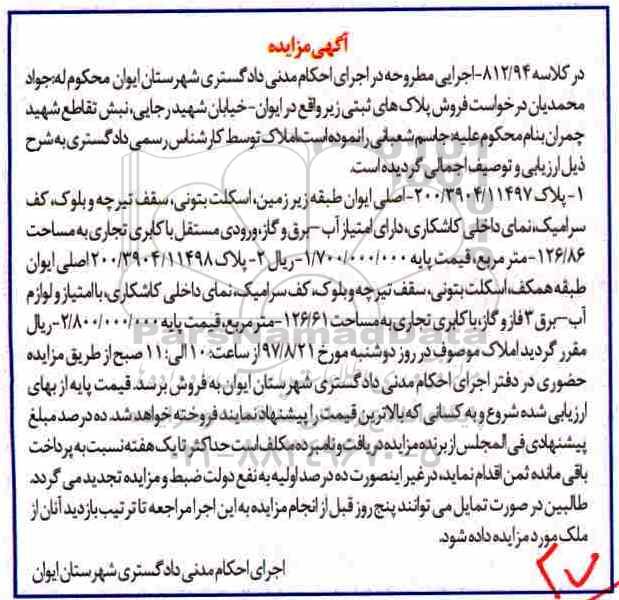 آگهی مزایده
در کلاسه ۸۱۲/۹۴-اجرایی مطروحه در اجرای احکام مدنی دادگستری شهرستان ایوان محکوم له:جواد
محمدیان درخواست فروش پلاک های ثبتی زیر واقع در ایوان-خیابان شهید رجایی، نبش تقاطع شهید
چمران بنام محکوم علیه:جاسم شعبانی را نموده است.املاک توسط کارشناس رسمی دادگستری به شرح
ذیل ارزیابی و توصیف اجمالی گردیده است.
۱-پلاک ۲۰۰/۳۹۰۴/۱۱۴۹۷-اصلی ایوان طبقه زیرزمین، اسکلت بتونی، سقف تیرچه و بلوک، کف
سرامیک، نمای داخلی کاشکاری، دارای امتیاز آب-برق و گاز، ورودی مستقل با کابری تجاری به مساحت
۱۲۶/۸۶-متر مربع، قیمت پایه ۱/۷۰۰/۰۰۰/۰۰۰-ریال ۲-پلاک ۲۰۰/۳۹۰۴/۱۱۴۹۸ اصلی ایوان
طبقه همکف، اسکلت بتونی، سقف تیرچه و بلوک، کف سرامیک، نمای داخلی کاشکاری، با امتیاز و لوازم
آب-برق ۳ فاز و گاز، با کابری تجاری به مساحت ۱۲۶/۶۱-متر مربع، قیمت پایه ۲/۸۰۰/۰۰۰/۰۰۰-ریال
مقرر گردید املاک موصوف در روز دوشنبه مورخ ۹۷/۸/۲۱ از ساعت: ۱۰ الی: ۱۱ صبح از طریق مزایده
حضوری در دفتر اجرای احکام مدنی دادگستری شهرستان ایوان به فروش برسد. قیمت پایه از بهای
ارزیابی شده شروع و به کسانی که بالاترین قیمت را پیشنهاد نمایند فروخته خواهد شد. ده درصد مبلغ
پیشنهادی فی المجلس از برنده مزایده دریافت و نامبرده مکلف است حداکثر تا یک هفته نسبت به پرداخت
باقی مانده ثمن اقدام نماید، در غیر اینصورت ده درصد اولیه به نفع دولت ضبط و مزایده تجدید می گردد.
طالبین در صورت تمایل می توانند پنج روز قبل از انجام مزایده به این اجرا مراجعه تا ترتیب بازدید آنان از
ملک مورد مزایده داده شود.
اجرای احکام مدنی دادگستری شهرستان ایوان
ParsNamadData
۰۲۱-۸۸۳۴۹۶۷۰-۵
۲۷